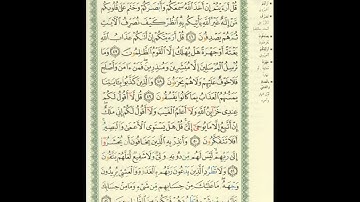 قُلْ أَرَءَيْتُمْ إِنْ أَخَذَ ٱللَّهُ سَمْعَكُمْ وَأَبْصَٰرَكُمْ وَخَتَمَ عَلَىٰ قُلُوبِكُم
مَّنْ إِلَٰهٌ غَيْرُ ٱللَّهِ يَأْتِيكُم بِهِ ٱنظُرْ كَيْفَ نُصَرِّفُ ٱلْءَايَٰتِ
ثُمَّ هُمْ يَصْدِفُونَ ٤٦ قُلْ أَرَءَيْتَكُمْ إِنْ أَتَىٰكُمْ عَذَابُ ٱللَّهِ
بَغْتَةً أَوْ جَهْرَةً هَلْ يُهْلَكُ إِلَّا ٱلْقَوْمُ ٱلظَّٰلِمُونَ ٤٧ وَمَا
نُرْسِلُ ٱلْمُرْسَلِينَ إِلَّا مُبَشِّرِينَ وَمُنذِرِينَ فَمَنْ ءَامَنَ وَأَصْلَحَ
فَلَا خَوْفٌ عَلَيْهِمْ وَلَا هُمْ يَحْزَنُونَ ٤٨ وَٱلَّذِينَ كَذَّبُوا۟ بِـَٔايَٰتِنَا
يَمَسُّهُمُ ٱلْعَذَابُ بِمَا كَانُوا۟ يَفْسُقُونَ ٤٩ قُل لَّآ أَقُولُ لَكُمْ
عِندِى خَزَآئِنُ ٱللَّهِ وَلَآ أَعْلَمُ ٱلْغَيْبَ وَلَآ أَقُولُ لَكُمْ إِنِّى مَلَكٌ
إِنْ أَتَّبِعُ إِلَّا مَا يُوحَىٰٓ إِلَىَّ قُلْ هَلْ يَسْتَوِى ٱلْأَعْمَىٰ وَٱلْبَصِيرُ
أَفَلَا تَتَفَكَّرُونَ ٥٠ وَأَنذِرْ بِهِ ٱلَّذِينَ يَخَافُونَ أَن يُحْشَرُوٓا۟
إِلَىٰ رَبِّهِمْ لَيْسَ لَهُم مِّن دُونِهِۦ وَلِىٌّ وَلَا شَفِيعٌ لَّعَلَّهُمْ يَتَّقُونَ
٥١ وَلَا تَطْرُدِ ٱلَّذِينَ يَدْعُونَ رَبَّهُم بِٱلْغَدَوٰةِ وَٱلْعَشِىِّ يُرِيدُونَ
وَجْهَهُۥ مَا عَلَيْكَ مِنْ حِسَابِهِم مِّن شَىْءٍ وَمَا مِنْ حِسَابِكَ